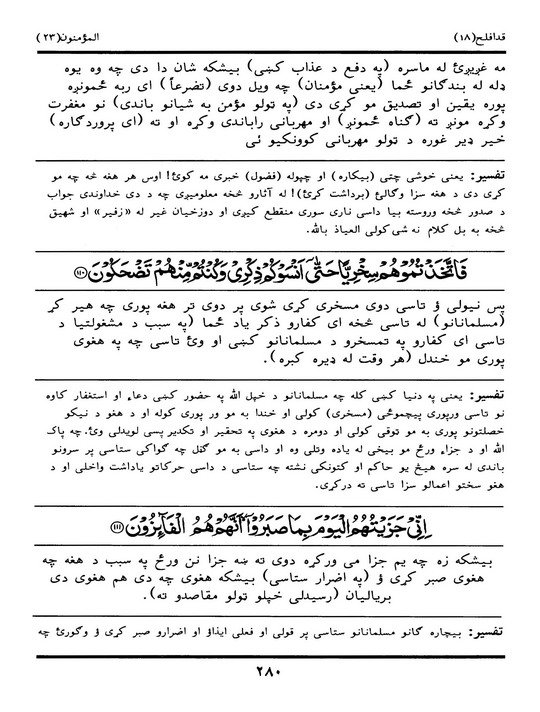 قدافلح(۱۸) المؤمنون(۲۳)
مه غږيږئ له ماسره (په دفع د عذاب کښي) بيشکه شان دا دی چه وه يوه
ډله له بندګانو ځما (يعنی مؤمنان) چه ويل دوی (تضرعاً) ای ربه ځمونږه
پوره يقين او تصديق مو کړی دی (په ټولو مؤمن به شيانو باندی) نو مغفرت
وکړه مونږ ته (ګناه ځمونږ) او مهربانی راباندی وکړه او ته (ای پروردګاره)
خير ډير غوره د ټولو مهربانی کوونکيو ئی
تفسير: يعنی خوشی چتی (بيکاره) او چپوله (فضول) خبری مه کوئ! اوس هر هغه څه چه مو
کړی دی د هغه سزا وګالئ (برداشت کړئ)! له آثارو څخه معلوميږی چه د دی خداوندی جواب
د صدور څخه وروسته بيا داسی ناری سوری منقطع کيږی او دوزخيان غير له «زفير» او شهيق
څخه به بل کلام نه شی کولی العياذ بالله.
فَاتَّخَذْتُمُوهُمْ سِخْرِيًّا حَتَّىٰ أَنْسَوْكُمْ ذِكْرِي وَكُنْتُمْ مِنْهُمْ تَضْحَكُونَ ۝۱۱۰
پس نيولی ؤ تاسی دوی مسخری کړی شوی پر دوی تر هغه پوری چه هير کړ
(مسلمانانو) له تاسی څخه ای کفارو ذکر ياد ځما (په سبب د مشغلتيا د
تاسی ای کفارو په تمسخرو د مسلمانانو کښی او وئ تاسی چه په هغوی
پوری مو خندل (هر وقت له ډيره کبره).
تفسير: يعنی په دنيا کښی کله چه مسلمانانو د خپل الله په حضور کښی دعاء او استغفار کاوه
نو تاسی ورپوری پيچموځی (مسخری) کولی او خندا به مو ور پوری کوله او د هغو د نيکو
خصلتونو پوری به مو ټوقی کولی او دومره د هغوی په تحقير او تکدير پسی لويدلی وئ. چه پاک
الله او د جزاء ورځ مو بيخی له ياده وتلی وه او داسی به مو ګڼل چه ګواکی ستاسی پر سرونو
باندی له سره هيڅ يو حاکم او کتونکی نشته چه ستاسی د داسی حرکاتو ياداشت واخلی او د
هغو سختو اعمالو سزا تاسی ته درکړی.
إِنِّي جَزَيْتُهُمُ الْيَوْمَ بِمَا صَبَرُوا أَنَّهُمْ هُمُ الْفَائِزُونَ ۝۱۱۱
بيشکه زه چه يم جزا می ورکړه دوی ته ښه جزا نن ورځ په سبب د هغه چه
هغوی صبر کړی ؤ (په اضرار ستاسی) بيشکه هغوی چه دی هم هغوی دی
برياليان (رسيدلی خپلو ټولو مقاصدو ته).
تفسير: بيچاره ګانو مسلمانانو ستاسی پر قولی او فعلی ايذاؤ او اضرارو صبر کړی ؤ وګورئ چه
۲۸۰